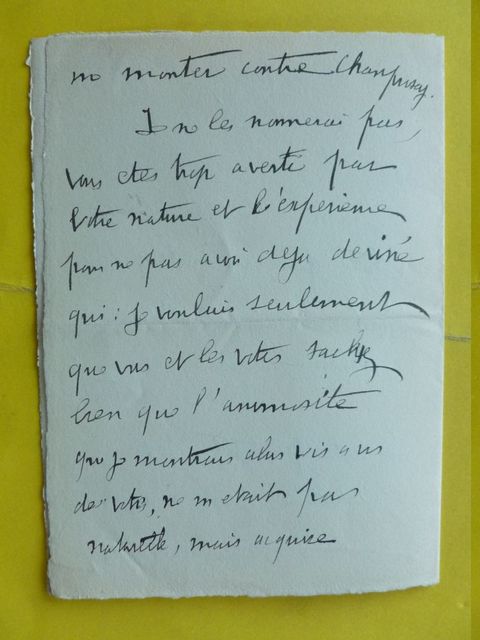 me monter contre Champrosay.
Je ne les nommerai pas,
vous etes trop averti par
votre nature et l'expérience
pour ne pas avoir deja deviné
qui : je voulais seulement
que vous et les votres sachiez
bien que l'animosité
que je montrais alors vis a vis
de vous, ne m'etait pas
naturelle, mais acquise